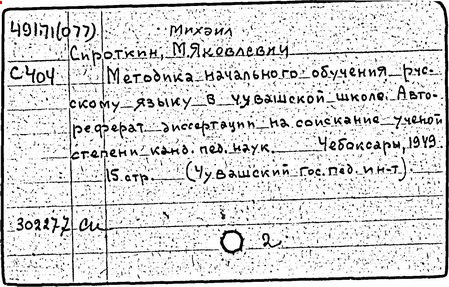 49171(077) Михаил
Сироткин, М.Яковлевич
С404 Методика начального обучения рус-
скому языку в чувашской школе. Авто-
реферат диссертации на соискание ученой
степени канд. пед. наук. Чебоксары, 1949
15 стр. (Чувашский гос. пед. ин-т).
302277 си
2